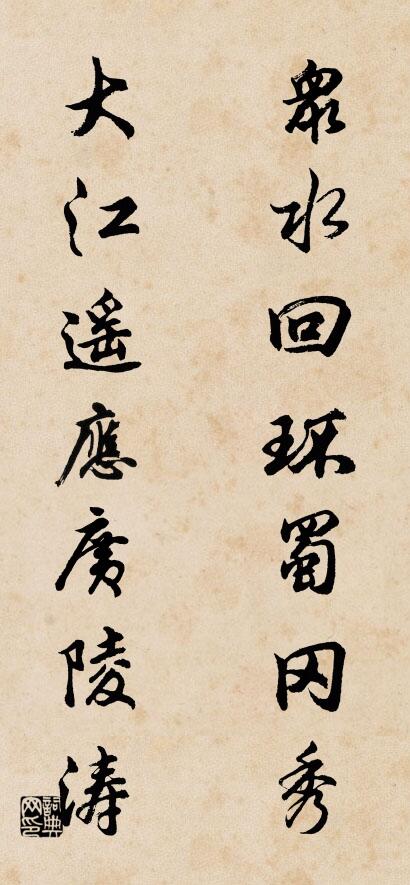 衆水回环蜀冈秀
大江遥應廣陵涛
詞典网印